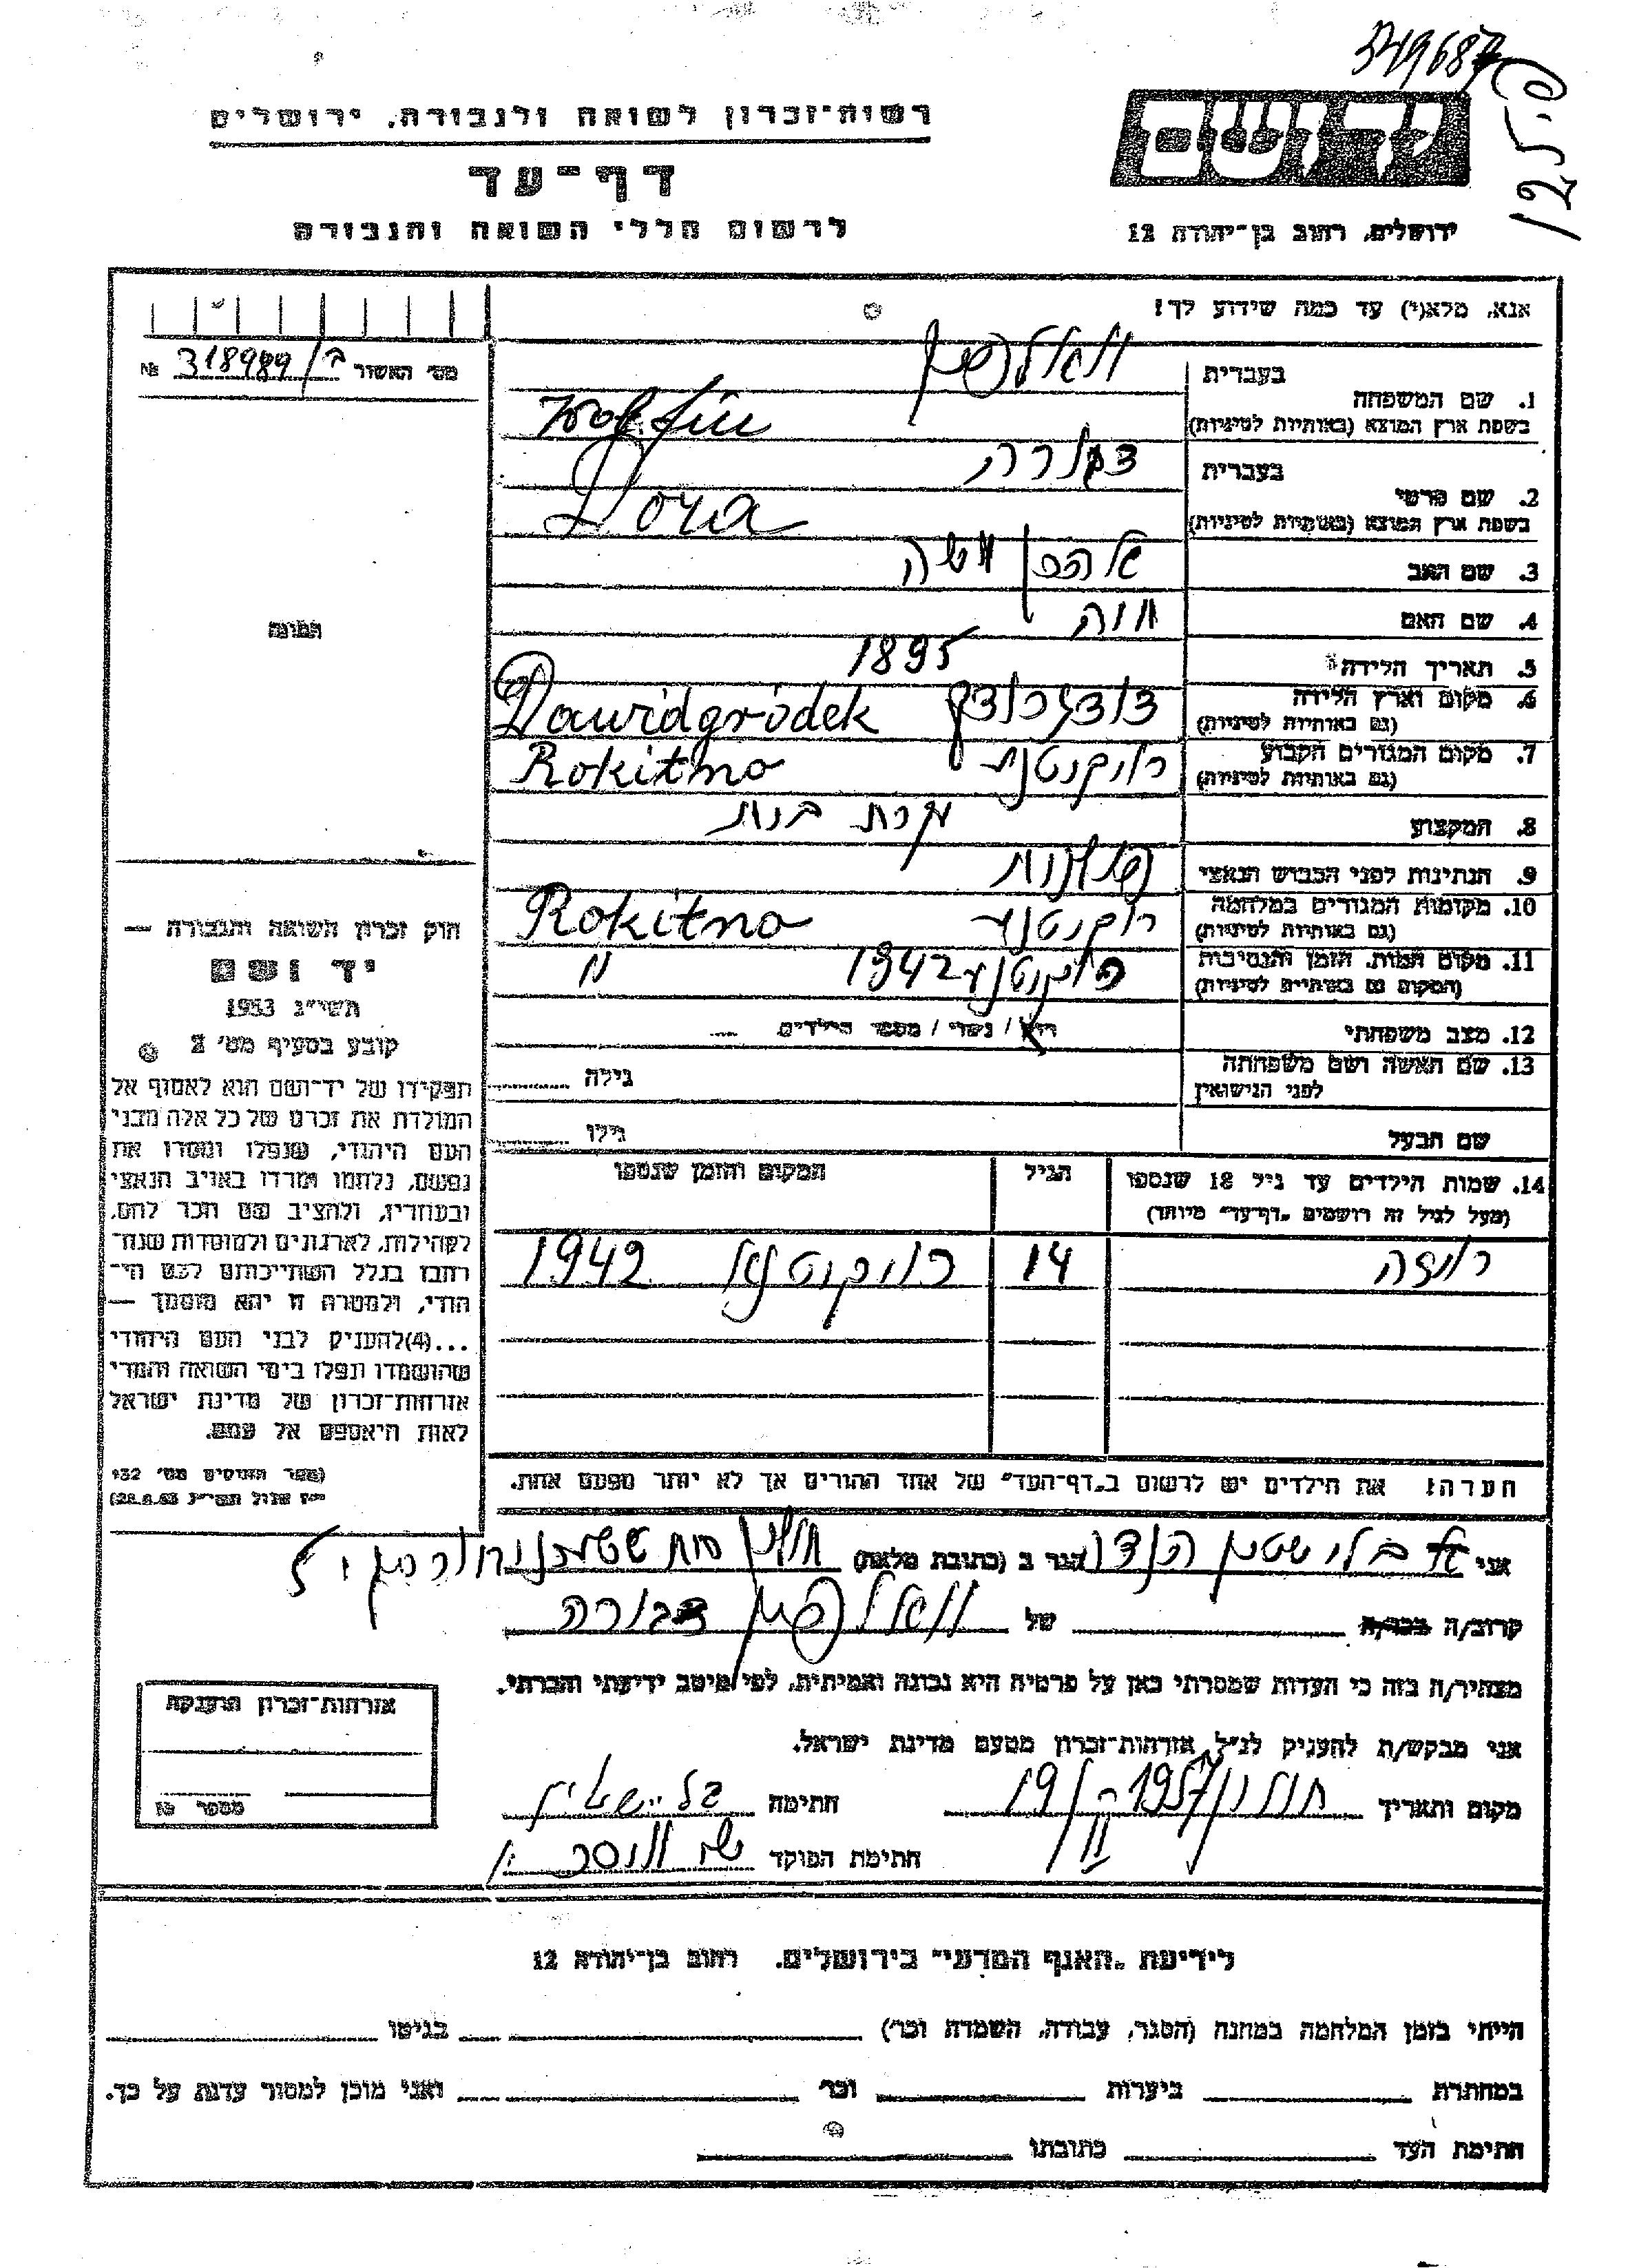 349687
125.0
רשות-זכרון לשואה ולגבורה, ירושלים
דף-עד
לרשום חללי השואה והגבורה
יד ושם
ירושלים, רחוב בן-יהודה 12
אנא, מלא(י) עד כמה שידוע לך!
מס' האשור ב/318989 №
1. שם המשפחה
בעברית
וואלפין
בשפת ארץ המוצא (באותיות לטיניות)
Wolfin
2. שם פרטי
בעברית
דבורה
בשפת ארץ המוצא (באותיות לטיניות)
Dora
3. שם האב
אהרן משה
4. שם האם
חוה
5. תאריך הלידה
1895
6. מקום וארץ הלידה
(גם באותיות לטיניות)
Dawidgródek
7. מקום המגורים הקבוע
(גם באותיות לטיניות)
Rokitno
8. המקצוע
עקרת בית
9. הנתינות לפני הכבוש הנאצי
פולנית
10. מקומות המגורים במלחמה
(גם באותיות לטיניות)
רוקיטנו Rokitno
11. מקום המות, הזמן והנסיבות
(המקום גם באותיות לטיניות)
רוקיטנו 1942 "
12. מצב משפחתי
רווק / נשוי / מספר הילדים
13. שם האשה ושם משפחתה
לפני הנישואין
גילה
שם הבעל
גילו
14. שמות הילדים עד גיל 18 שנספו
(מעל לגיל זה רושמים "דף-עד" מיוחד)
הגיל
המקום והזמן שנספו
14
רוקיטנו 1942
הערה! את הילדים יש לרשום ב"דף-העד" של אחד ההורים אך לא יותר מפעם אחת.
תמונה
חוק זכרון השואה והגבורה —
יד ושם
תשי"ג 1953
קובע בסעיף מס' 2
תפקידו של יד-ושם הוא לאסוף אל
המולדת את זכרם של כל אלה מבני
העם היהודי, שנפלו ומסרו את
נפשם, נלחמו ומרדו באויב הנאצי
ובעוזריו, ולהציב שם וזכר להם,
לקהילות, לארגונים ולמוסדות שנח-
רבו בגלל השתייכותם לעם הי-
הודי, ולמטרה זו יהא מוסמך —
...(4) להעניק לבני העם היהודי
שהושמדו ונפלו בימי השואה והמרי
אזרחות-זכרון של מדינת ישראל
לאות היאספם אל עמם.
(ספר החוקים מס' 132
י"ז אלול תשי"ג 28.8.53)
אני
הגר ב (כתובת מלאה)
קרוב/ה מכר/ה של וואלפין דבורה
מצהיר/ה בזה כי העדות שמסרתי כאן על פרטיה היא נכונה ואמיתית, לפי מיטב ידיעתי והכרתי.
אני מבקש/ת להעניק לנ"ל אזרחות-זכרון מטעם מדינת ישראל.
מקום ותאריך חולון 1957
חתימה
חתימת הפוקד
אזרחות-זכרון הוענקה
מספר
לידיעת "האגף המדעי" בירושלים, רחוב בן-יהודה 12
הייתי בזמן המלחמה במחנה (הסגר, עבודה, השמדה וכו') בגיטו
במחתרת ביערות וכו' ואני מוכן למסור עדות על כך.
חתימת העד כתובתו